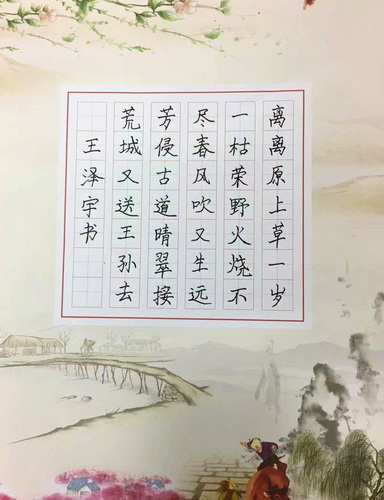 离离原上草一岁
一枯荣野火烧不
尽春风吹又生远
芳侵古道晴翠接
荒城又送王孙去
王泽宇书